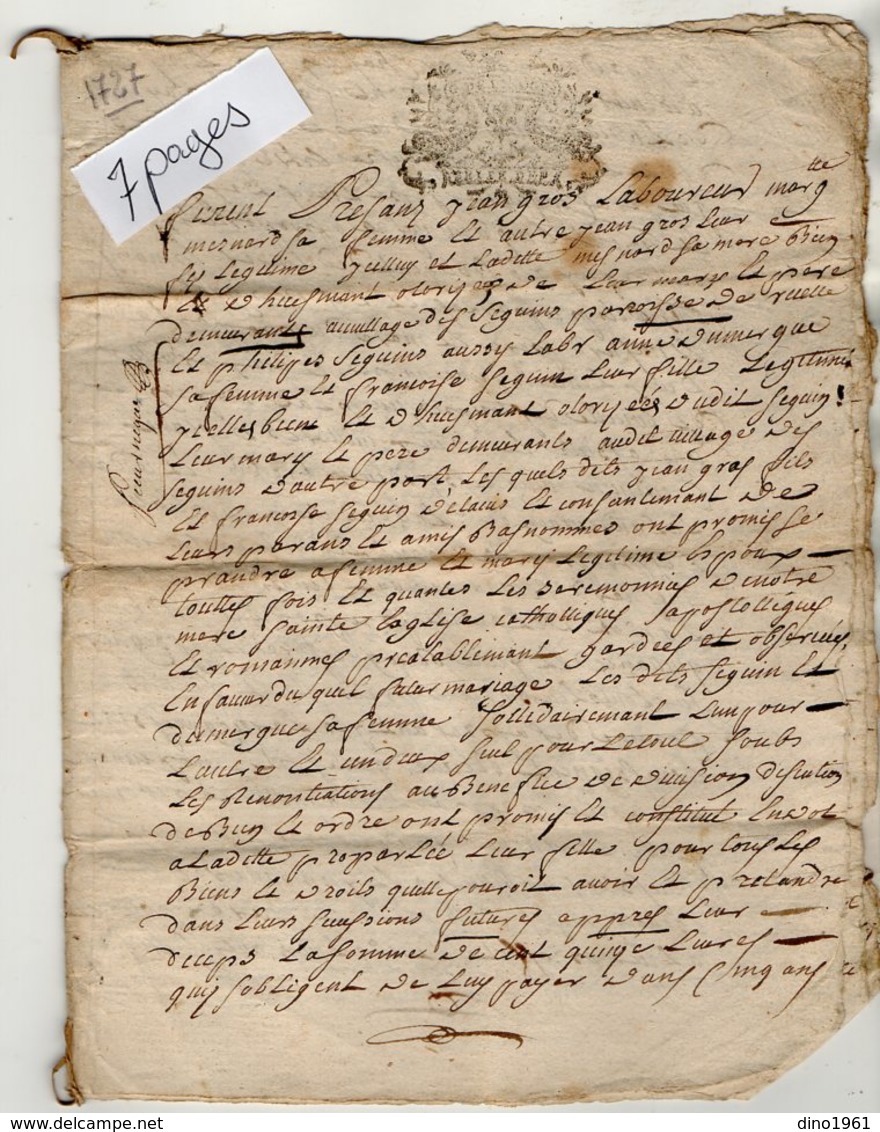 1727
7 pages
furent Presans jean gros Laboureur margtte
mesnard sa femme et autre jean gros Leur
fils Legitime jcelluy et Ladette mesnard sa mere Bien
et dhuesmant otorizes de Leur mary et pere
demeurants au village des seguins paroisse de ruelle
et philipes seguins aussy Labr anne dumergue
sa femme et francoise seguin Leur fille Legitime
jcelles bient et dhuesmant otorizées dudit seguin
Leur mary et pere demeurants audit village des
seguins d'autre part Les quels dits jean gros fils
et francoise seguin de lavis et consantemant de
Leurs parans et amis Basnommés ont promis se
prandre a femme et mary Legitime Espoux
touttes fois et quantes Les seremonnies de notre
mere sainte Esglise catholliques apostolliques
et romainnes prealablemant gardées et observées
En faveur du quel futur mariage Les dits seguin et
dumergue sa femme sollidairemant Lun pour
Lautre et un deux seul pour Le tout soubs
Les Renontiations au Benefice de division discution
de Bien et ordre ont promis et constitué En dot
a Ladette proparlée Leur fille pour tous Les
Biens et droits quelle pouroit avoir et pretandre
dans Leurs sucessions futures appres Leur
deceps La somme de cent quinze Livres
quis sobligent de Luy payer dans Cinq ans
dino1961